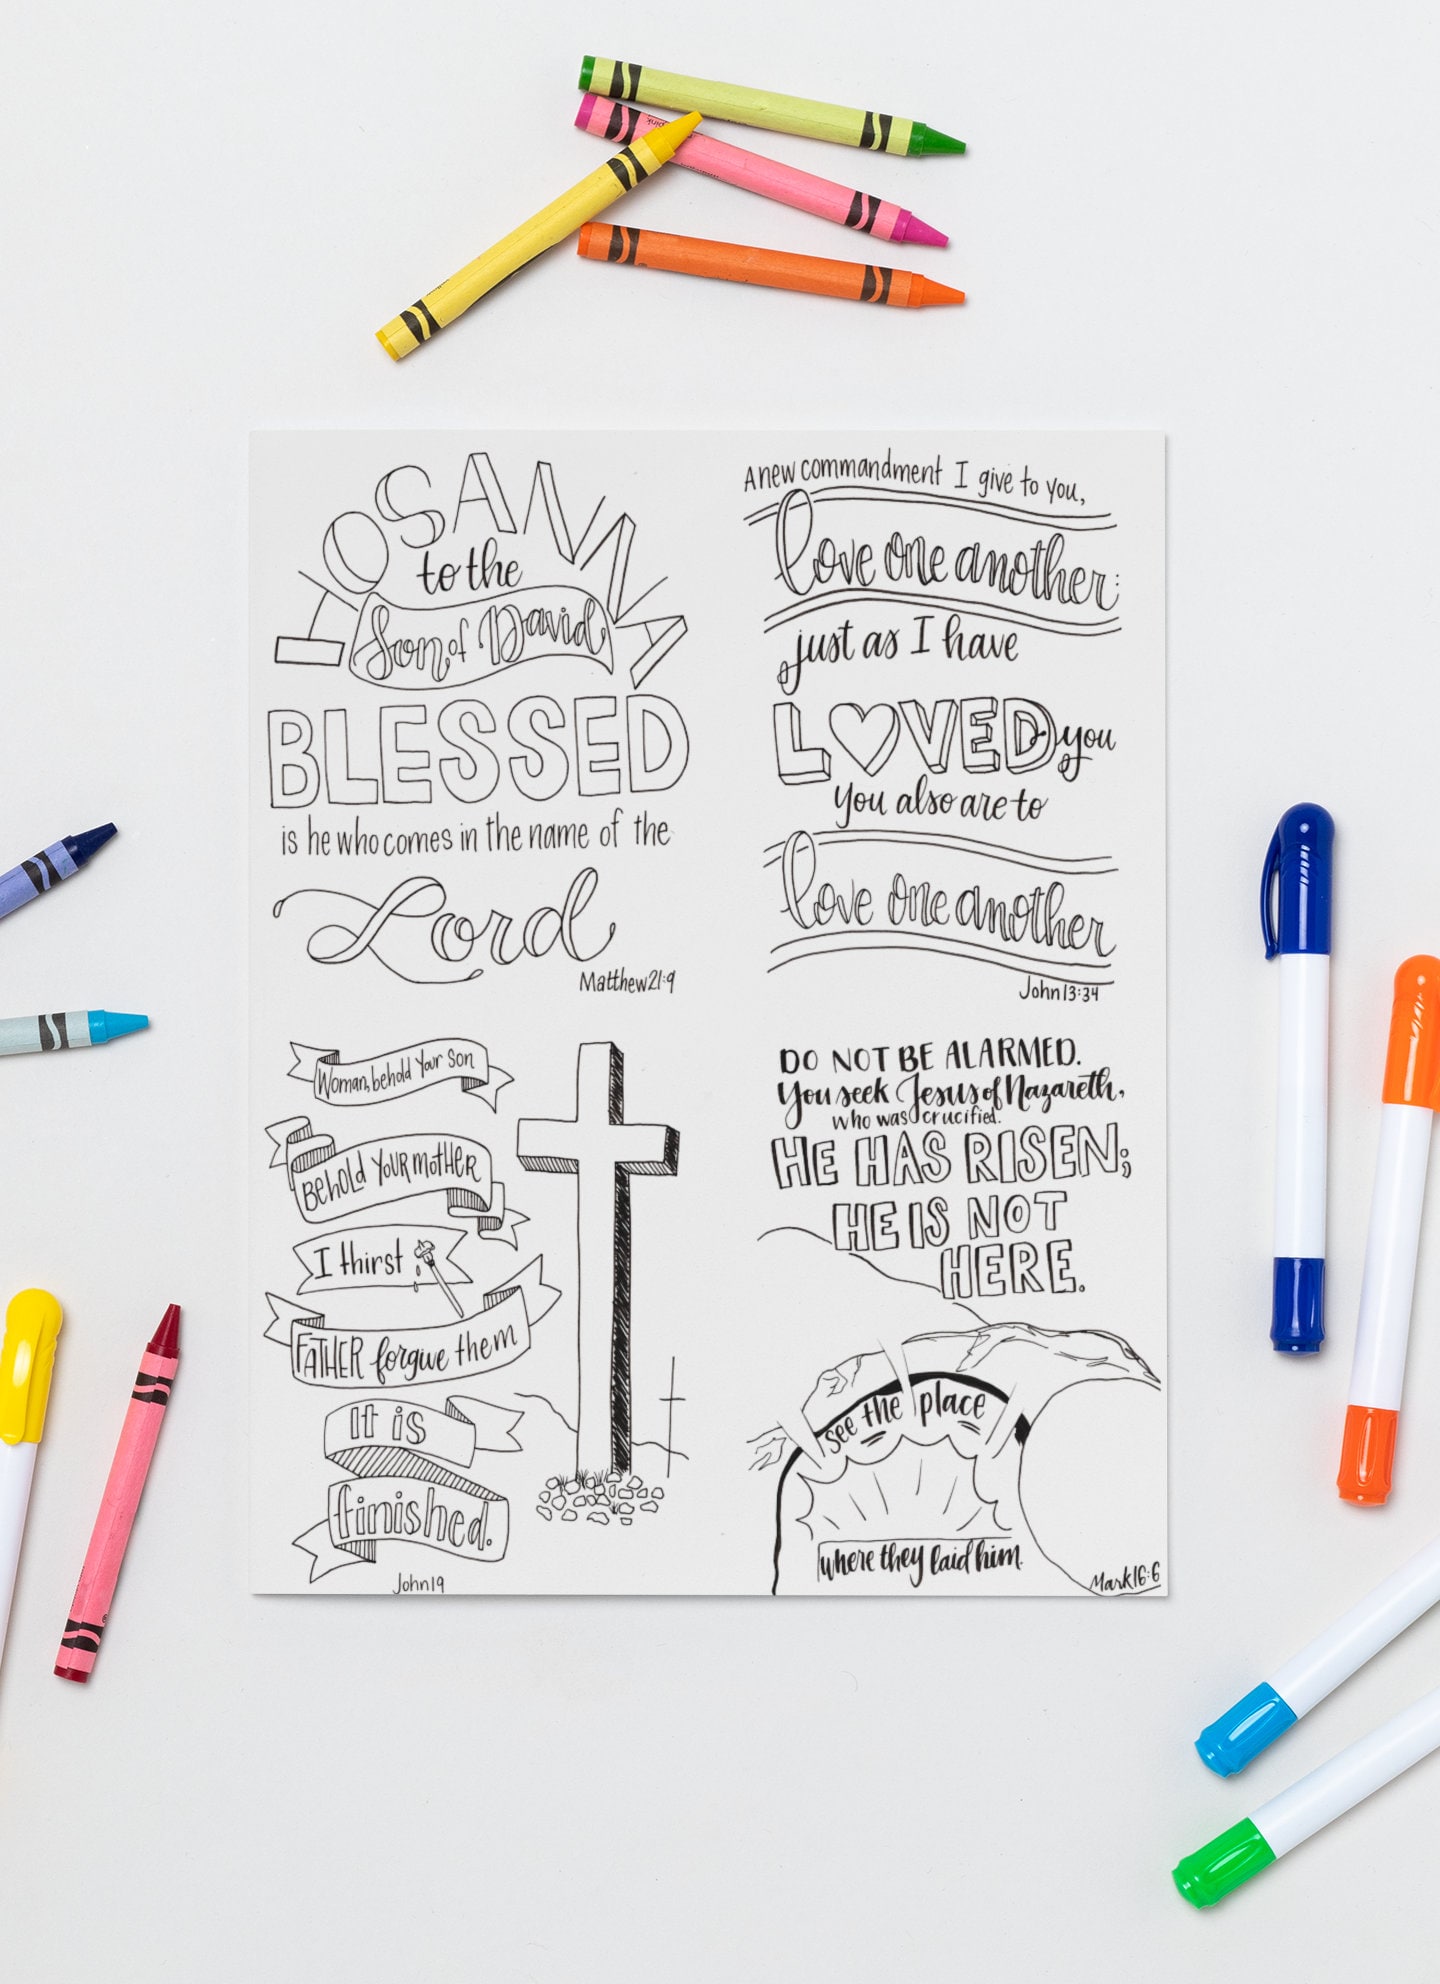 HOSANNA
to the
Son of David
BLESSED
is he who comes in the name of the
Lord
Matthew 21:9
A new commandment I give to you,
love one another:
just as I have
LOVED you
you also are to
love one another
John 13:34
Woman, behold your son
Behold your mother
I thirst
FATHER forgive them
It is
finished.
John 19
DO NOT BE ALARMED.
You seek Jesus of Nazareth,
who was crucified.
HE HAS RISEN;
HE IS NOT
HERE.
see the place
where they laid him.
Mark 16:6